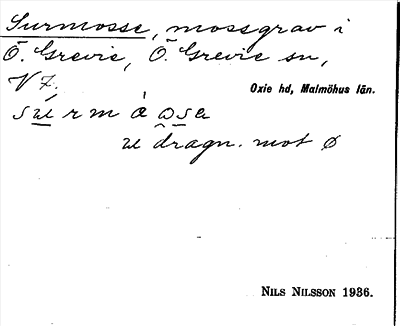 Surmosse, mossgrav i
Ö. Grevie, Ö. Grevie sn,
V 7.
Oxie hd, Malmöhus län.
u dragn. mot ø
NILS NILSSON 1936.